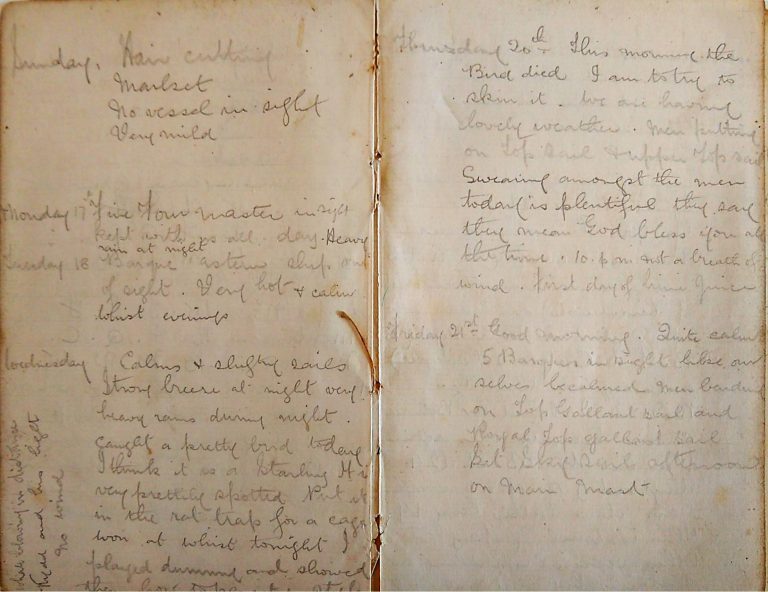 Sunday, Hair cutting
Market
No vessel in sight
Very mild
Monday 17th Five Four master in sight
kept with us all day. Heavy
rain at night
Tuesday 18 Barque astern ship out
of sight. Very hot & calm
whist evenings
Wednesday Calms & slighty sails
Strong breeze at night very
heavy rains during night.
Caught a pretty bird today
I think it is a Starling It is
very prettily spotted Put it
in the rat trap for a cage
won at whist tonight I
played dummy and showed
them how to
and his light
no wind
Thursday 20th This morning the
Bird died I am to try to
skin it. We are having
lovely weather. Men putting
on Top Sail & upper Top sail
Swearing amongst the men
today is plentiful they say
they mean God bless you all
the time. 10. p m not a breath of
wind. First day of lime juice
Friday 21st Good morning. Quite calm
5 Barques in sight like our
selves becalmed Men bending
on Top Gallant sail and
Royal Top gallant sail
Set Sky Sail afternoon
on Main Mast